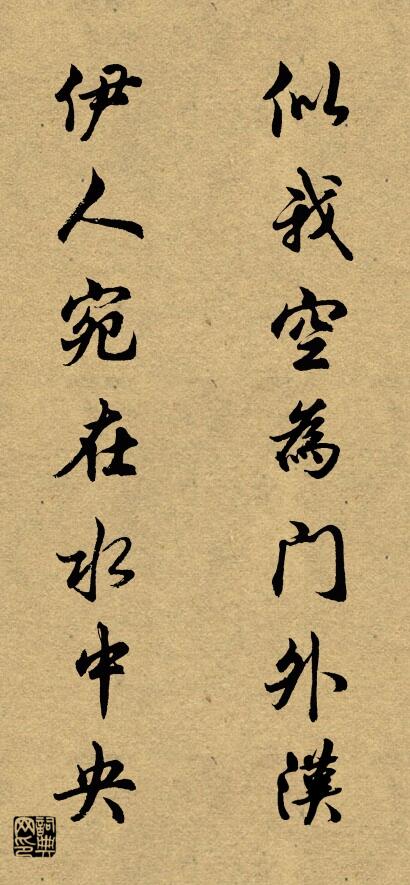 似我空為門外漢
伊人宛在水中央
詞典网印